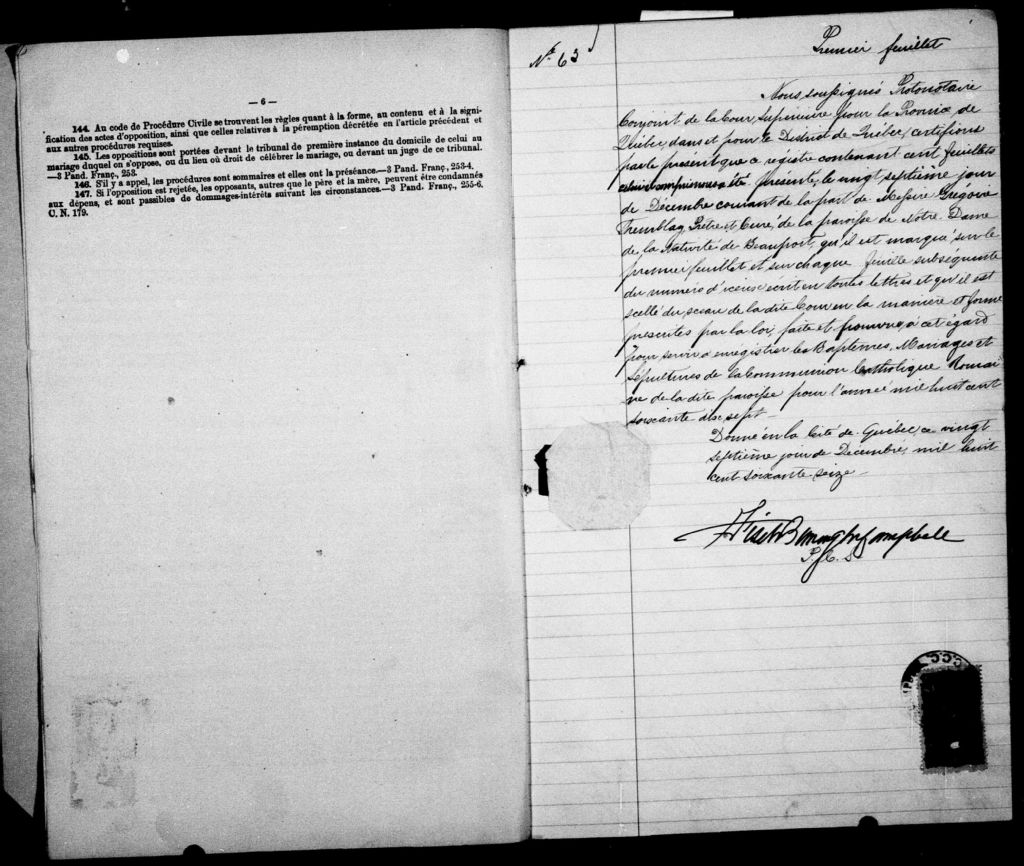 — 6 —
144. Au code de Procédure Civile se trouvent les règles quant à la forme, au contenu et à la signi-
fication des actes d'opposition, ainsi que celles relatives à la péremption décrétée en l'article précédent et
aux autres procédures requises.
145. Les oppositions sont portées devant le tribunal de première instance du domicile de celui au
mariage duquel on s'oppose, ou du lieu où droit de célébrer le mariage, ou devant un juge de ce tribunal.
—3 Pand. Franç., 253.
146. S'il y a appel, les procédures sont sommaires et elles ont la préséance.—3 Pand. Franç., 253-4.
147. Si l'opposition est rejetée, les opposants, autres que le père et la mère, peuvent être condamnés
aux dépens, et sont passibles de dommages-intérêts suivant les circonstances.—3 Pand. Franç., 255-6.
C. N. 179.
No 63
Premier feuillet
Nous soussignés Protonotaire
Conjoint de la Cour Supérieure pour la Province de
Québec, dans et pour le District de Québec, certifions
par le présent que ce registre contenant cent feuillets
celui-ci compris nous a été présenté, le vingt septième jour
de Décembre courant de la part de Messire Grégoire
Tremblay, Prêtre et Curé de la paroisse de Notre-Dame
de la Nativité de Beauport, qu'il est marqué sur le
premier feuillet et sur chaque feuille subséquente
du numéro d'icieux écrit en toutes lettres et qu'il est
scellé du sceau de la dite Cour en la manière et forme
prescrites par la loi, faite et pourvue à cet égard
pour servir à enregistrer les Baptêmes, Mariages et
Sépultures de la Communion Catholique Romai
ne de la dite paroisse pour l'année mil huit cent
soixante dix sept —
Donné en la Cité de Québec, ce vingt
septième jour de Décembre, mil huit
cent soixante seize —
Campbell
P.C.S.